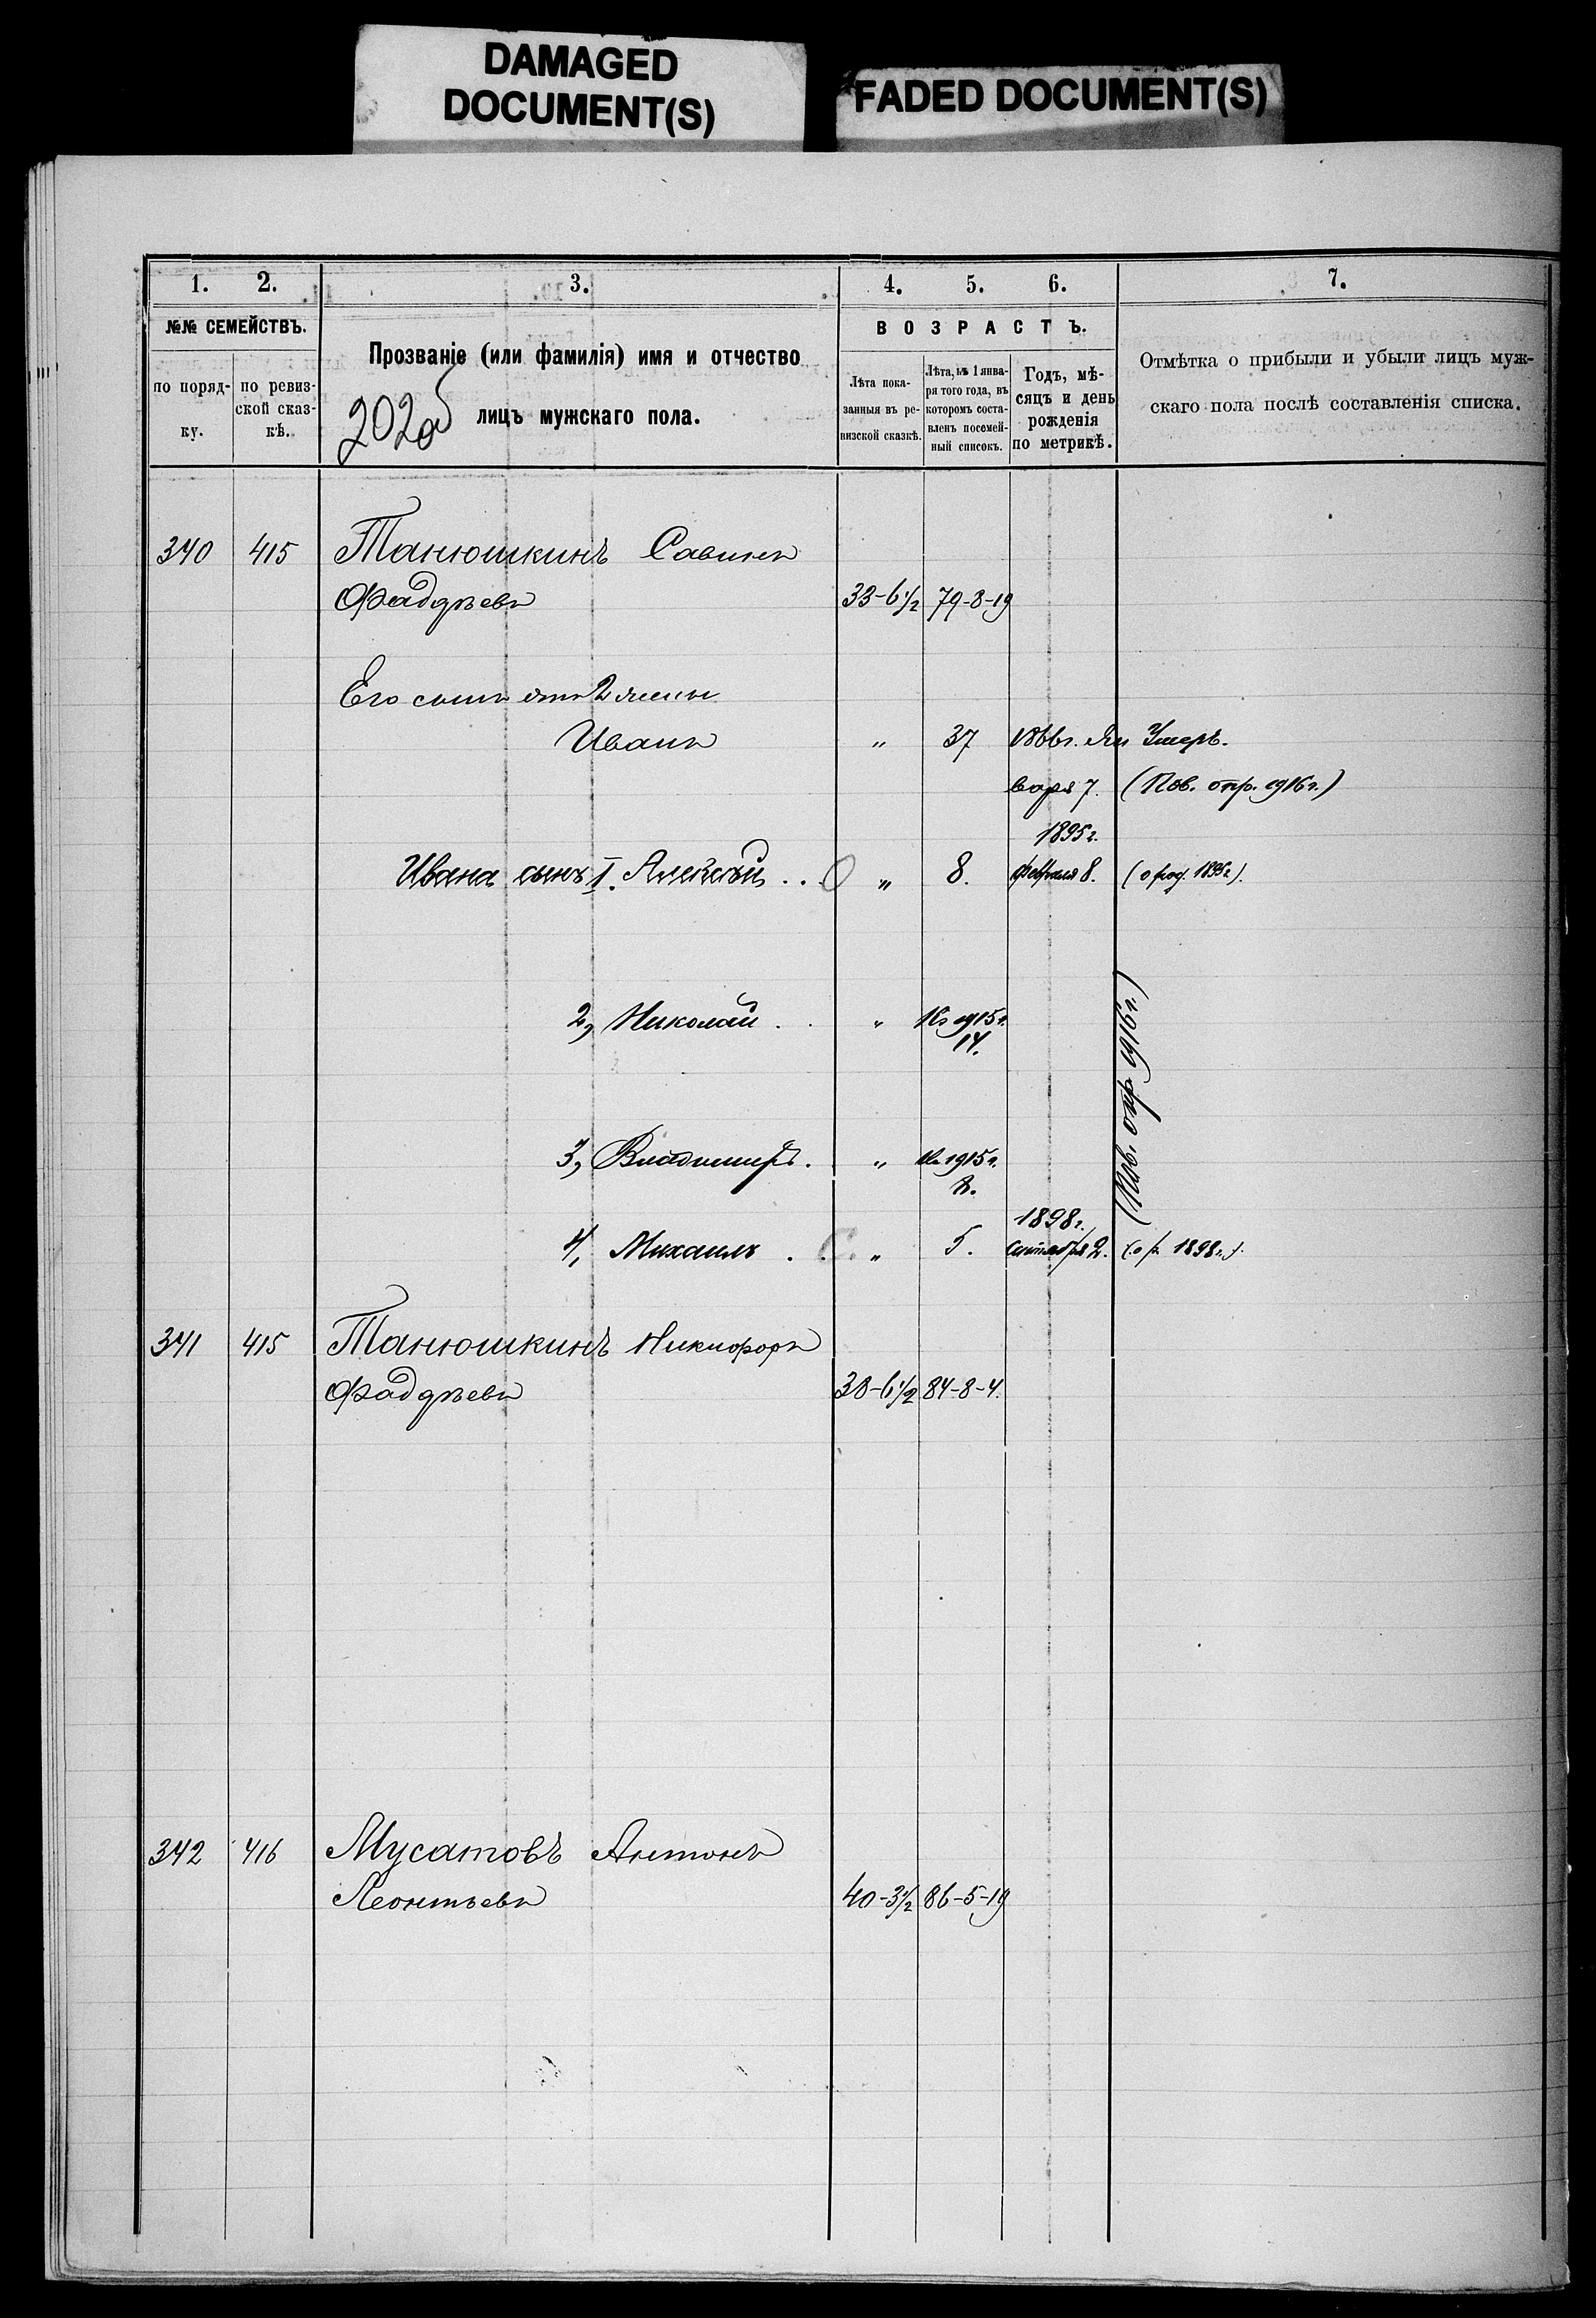 DAMAGED
DOCUMENT(S)
FADED DOCUMENT(S)
1. 2. 3. 4. 5. 6. 7.
№№ СЕМЕЙСТВЪ.
по поряд-
ку.
по ревиз-
ской сказ-
кѣ.
Прозваніе (или фамилія) имя и отчество
лицъ мужскаго пола.
202об
ВОЗРАСТЪ.
Лѣта пока-
занныя въ ре-
визской сказкѣ.
Лѣта, къ 1 янва-
ря того года, въ
которомъ соста-
вленъ посемей-
ный списокъ.
Годъ, мѣ-
сяцъ и день
рожденія
по метрикѣ.
Отмѣтка о прибыли и убыли лицъ муж-
скаго пола послѣ составленія списка.
340 415 Танюшкинъ Савинъ
Фаддѣевъ 33-6½ 79-8-19
Его сынъ отъ 2 жены
Иванъ " 37 1866г. Ян Умеръ.
варя 7. (Пов. опр. 1916г.)
1895г.
Ивана сынъ I. Алексѣй . . " 8. Февраля 8. (о род. 1895г.).
2, Николай . . " Къ 1915г.
14.
3, Владимиръ . " Къ 1915г.
(Пов. опр. 1916г.)
1898г.
4, Михаилъ . . " 5. Сентября 2. (о р. 1898г.).
341 415 Танюшкинъ Никифоръ
Фаддѣевъ 38-6½ 84-8-4.
342 416 Мусатовъ Антонъ
Леонтьевъ 40-3½ 86-5-19